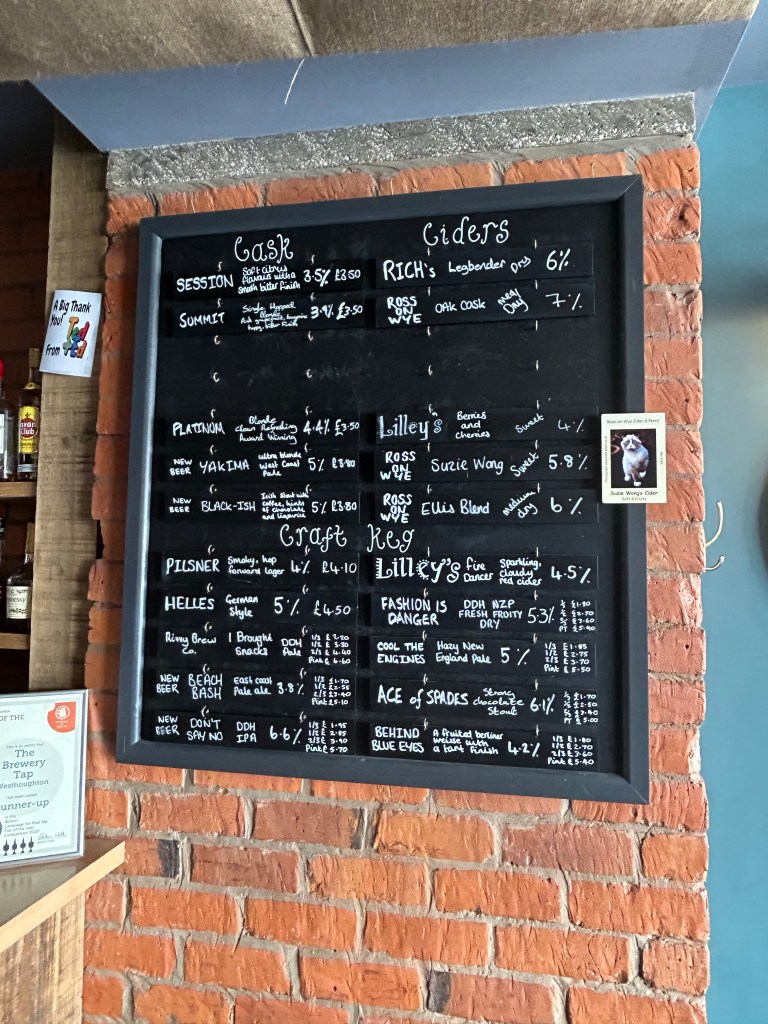 Cask
SESSION Soft citrus flavours with a smooth bitter finish 3.5% £3.50
SUMMIT Single Hopped Blonde hoppy, bitter finish 3.9% £3.50
PLATINUM Blonde Clean Refreshing Award Winning 4.4% £3.50
NEW BEER YAKIMA ultra blonde West Coast Pale 5% £3.80
NEW BEER BLACK-ISH Irish Stout with coffee, hints of chocolate and liquorice 5% £3.80
Ciders
RICH's Legbender Dry 6%
ROSS ON WYE OAK CASK Medi Dry 7%
Lilley's Berries and cherries Sweet 4%
ROSS ON WYE Suzie Wong Sweet 5.8%
ROSS ON WYE Ellis Blend medium dry 6%
Craft Keg
PILSNER Smoky, hop forward lager 4% £4.10
HELLES German Style 5% £4.50
Rivvy Brew Co. I Brought Snacks DDH Pale 1/3 £2.20 1/2 £3.30 2/3 £4.40 Pint £6.60
NEW BEER BEACH BASH East coast Pale ale 3.8% 1/3 £1.70 1/2 £2.55 2/3 £3.40 Pint £5.10
NEW BEER DON'T SAY NO DDH IPA 6.6% 1/3 £1.95 1/2 £2.85 2/3 £3.90 Pint £5.70
Lilley's Fire Dancer Sparkling, cloudy red cider 4.5%
FASHION IS DANGER DDH NZP FRESH FRUITY DRY 5.3% £1.80 £2.70 £3.60 PT £5.40
COOL THE ENGINES Hazy New England Pale 5% 1/3 £1.85 1/2 £2.75 2/3 £3.70 Pint £5.50
ACE of SPADES Strong chocolate Stout 6.1% £1.70 £2.50 £3.40 PT £5.00
BEHIND BLUE EYES A fruited berliner weisse with a tart finish 4.2% 1/3 £1.80 1/2 £2.70 2/3 £3.60 Pint £5.40
A Big Thank
You!
From
Ted
Fed
Havana
Club
HENNESSY
Ross-on-Wye Cider & Perry
Suzie Wong's Cider
Soft & Fruity
OF THE
This is to certify that
The
Brewery
Tap
Westhoughton
has been voted
unner-up
in the
Bolton
Campaign for Real Ale
Pub of the Year
Competition